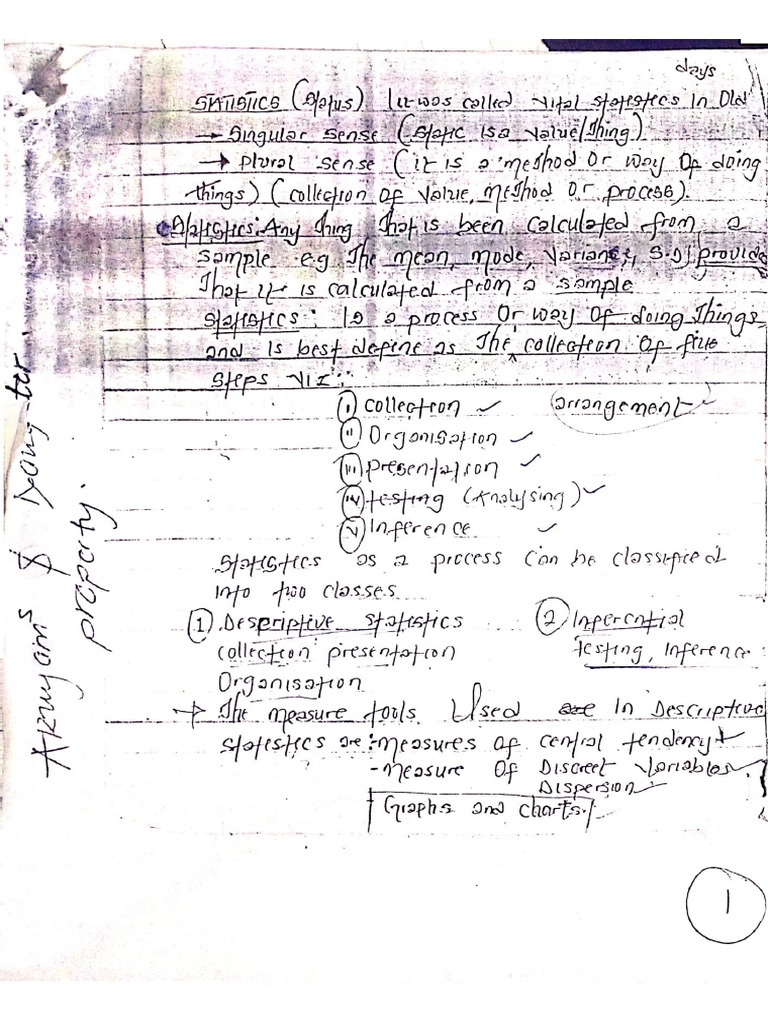 days
STATISTICS (Status) It was called vital statistics in Old
→ Singular sense (Static is a value/Thing)
→ Plural sense (it is a method or way of doing
things) (collection of value, method or process).
Statistics: Any Thing That is been calculated from a
sample e.g The mean, mode, variance, S.D) provide
That it is calculated from a sample
statistics: Is a process or way of doing Things
and is best define as The collection of five
steps VIZ:
(i) collection ✓ (arrangement) ✓
(ii) Organisation ✓
(iii) presentation ✓
(iv) testing (Analysing) ✓
(v) Inference ✓
Statistics as a process can be classified
into two classes
(1) Descriptive statistics (2) Inferential
collection presentation testing, Inference
Organisation
→ The measure tools Used are In Descriptive
statistics are :-measures of central tendency
-measure of Discreet variables
Dispersion ✓
Graphs and charts.
&
property.
1